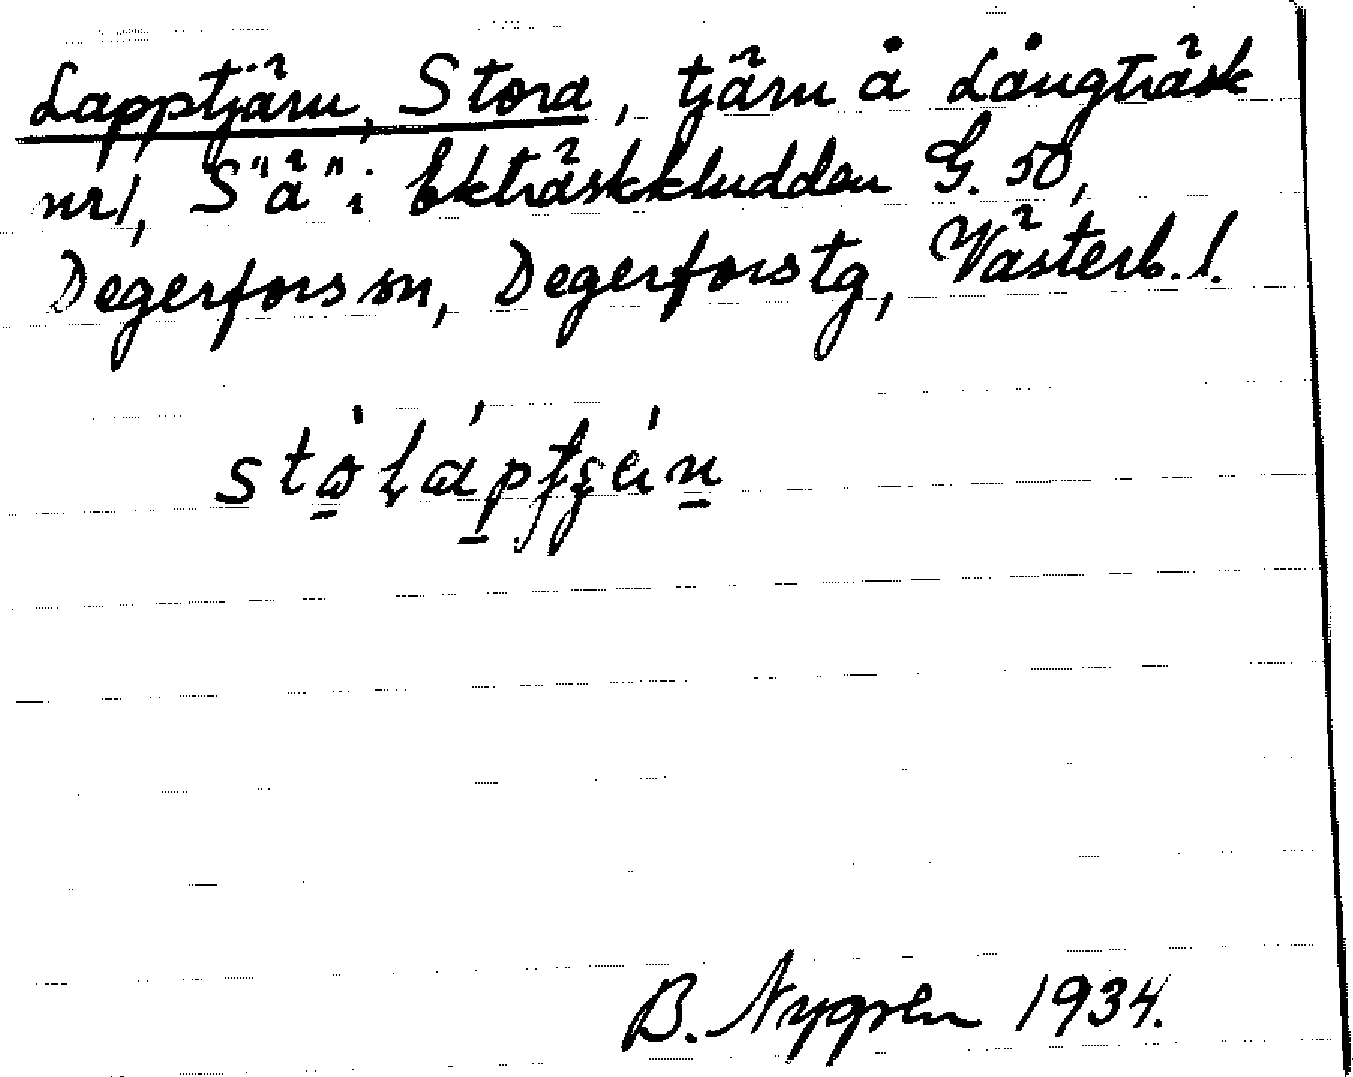 Lapptjärn, Stora, tjärn å Långträsk
nr 1, S "ä" i Ekträskkludden G. 50,
Degerfors sn, Degerfors tg, Västerb. l.
B. Nygren 1934.